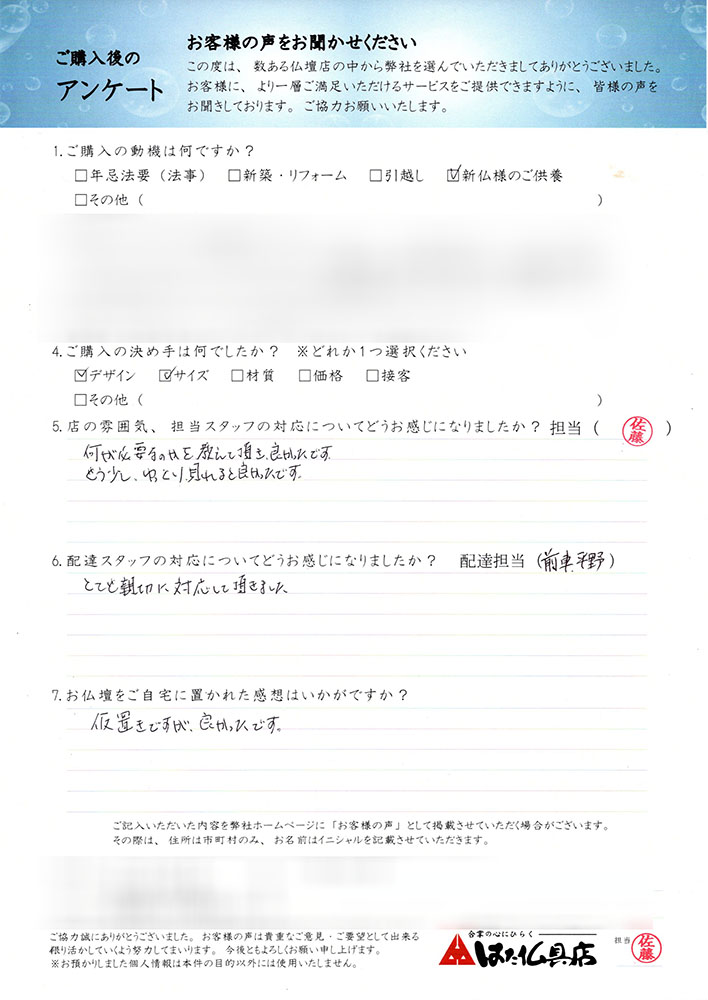 ご購入後の
アンケート
お客様の声をお聞かせください
この度は、数ある仏壇店の中から弊社を選んでいただきましてありがとうございました。
お客様に、より一層ご満足いただけるサービスをご提供できますように、皆様の声を
お聞きしております。ご協力お願いいたします。
1.ご購入の動機は何ですか？
□年忌法要（法事） □新築・リフォーム □引越し ☑新仏様のご供養
□その他（ ）
4.ご購入の決め手は何でしたか？ ※どれか1つ選択ください
☑デザイン ☑サイズ □材質 □価格 □接客
□その他（ ）
5.店の雰囲気、担当スタッフの対応についてどうお感じになりましたか？ 担当（ 佐藤 ）
何が必要なのかを教えて頂き、良かったです。
もう少し、ゆっくり見れると良かったです。
6.配達スタッフの対応についてどうお感じになりましたか？ 配達担当（前車 平野）
とても親切に対応して頂きました
7.お仏壇をご自宅に置かれた感想はいかがですか？
仮置きですが、良かったです。
ご記入いただいた内容を弊社ホームページに「お客様の声」として掲載させていただく場合がございます。
その際は、住所は市町村のみ、お名前はイニシャルを記載させていただきます。
ご協力誠にありがとうございました。お客様の声は貴重なご意見・ご要望として出来る
限り活かしていくよう努力してまいります。今後ともよろしくお願い申し上げます。
※お預かりしました個人情報は本件の目的以外には使用いたしません。
合掌の心にひらく
はた仏具店
担当 佐藤